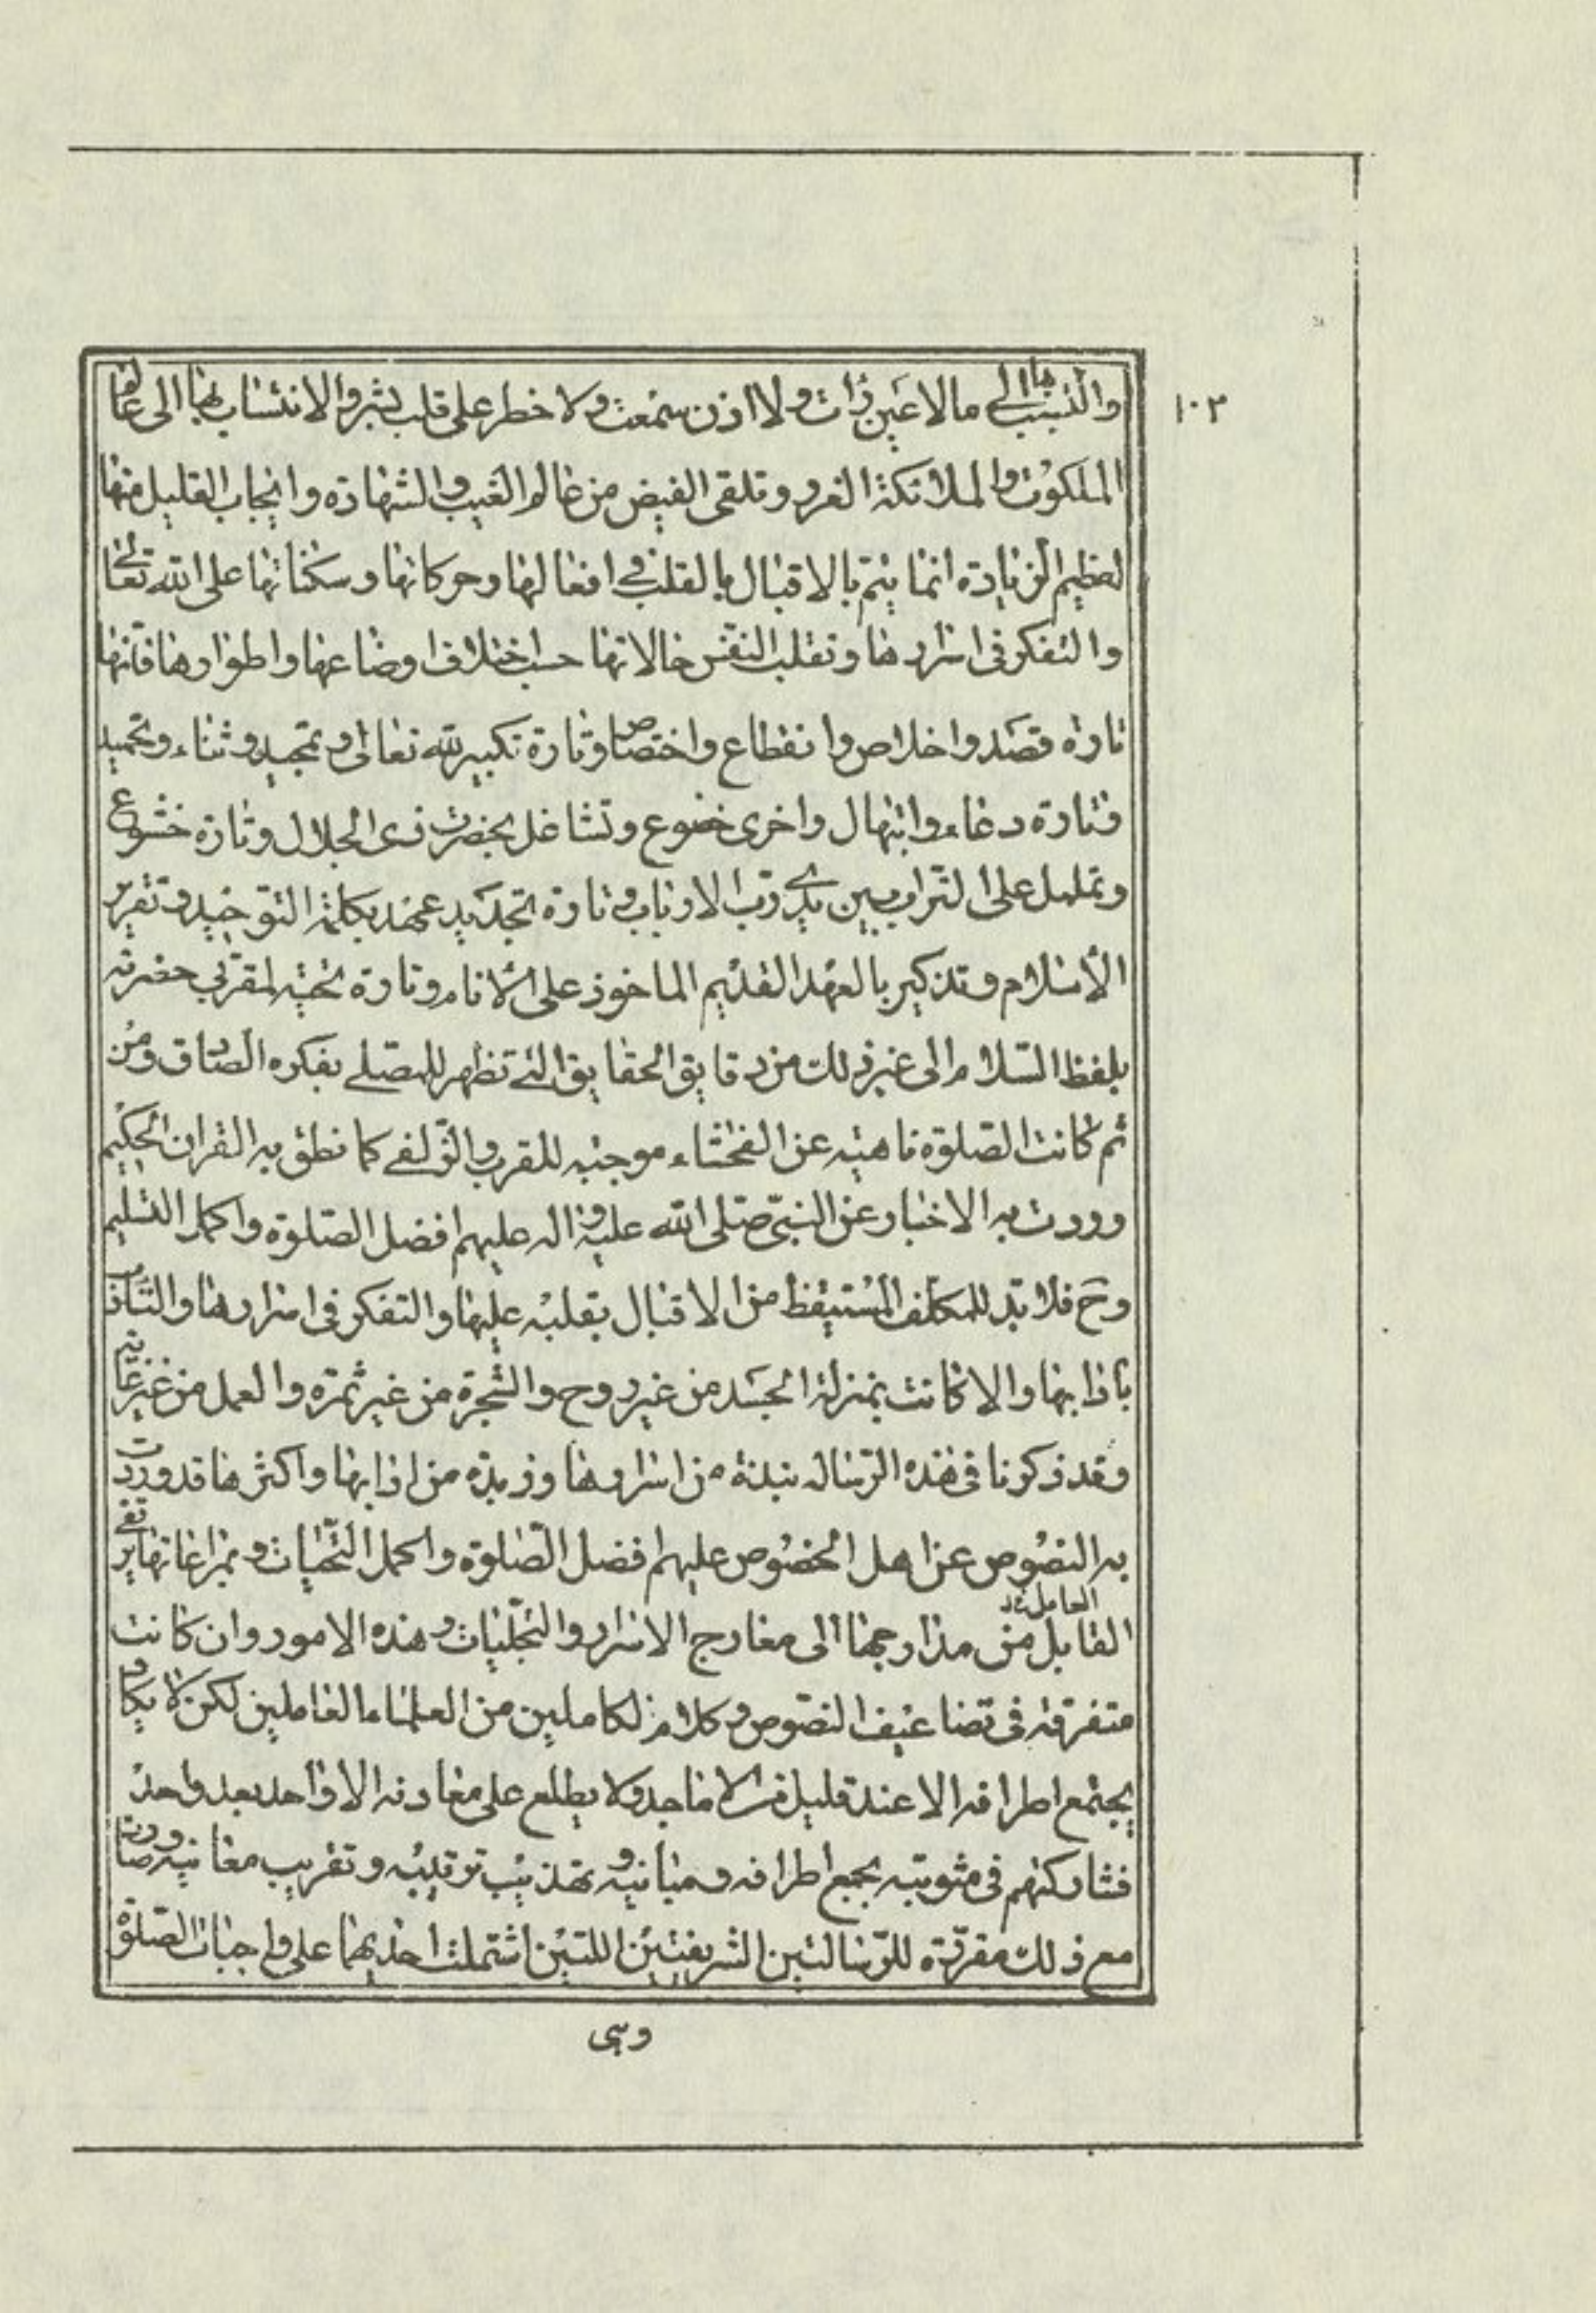 ١٠٣
والتسبب بها الى ما لا عين رأت ولا اذن سمعت ولا خطر على قلب بشر والانتساب بها الى عالم
الملكوت والملائكة الغر و وتلقى الفيض من عالم الغيب والشهادة وانجاب القليل منها
لعظيم الزيادة انما يتم بالاقبال بالقلب في افعالها وحركاتها وسكناتها على الله تعالى
والتفكر فى اسرارها وتقلب النفس حالاتها حسب اختلاف اوضاعها واطوارها فانها
تارة قصد واخلاص وانقطاع واختصاص وتارة تكبير لله تعالى وتمجيد وثناء وتحميد
فتارة دعاء وابتهال واخرى خضوع وتشاغل بحضرت ذى الجلال وتارة خشوع
وتململ على التراب بين يدي رب الارباب وتارة تجديد عهد بكلمة التوحيد وتقرير
الاسلام وتذكير بالعهد القديم الماخوذ على الانام وتارة تحية لمقربي حضرته
بلفظ السلام الى غير ذلك من دقايق الحقايق التي تظهر للمصلي بفكره الصادق ومن
ثم كانت الصلوة ناهية عن الفحشاء موجبه للقرب والزلفى كما نطق به القران الحكيم
ووردت به الاخبار عن النبى صلى الله عليه واله عليهم افضل الصلوة واكمل التسليم
وح فلا بد للمكلف المستيقظ من الاقبال بقلبه عليها والتفكر فى اسرارها والتأدب
بادابها والا كانت بمنزلة الجسد من غير روح والشجرة من غير ثمرة والعمل من غير غاية
وقد ذكرنا فى هذه الرسالة نبذة من اسرارها وزبدة من ادابها واكثرها قد وردت
به النصوص عن اهل الخصوص عليهم افضل الصلوة واكمل التحيات وبمراعاتها يرتقي
العامل خد
القابل من مدارجها الى معارج الاسرار والتجليات وهذه الامور وان كانت
متفرقة فى تضاعيف النصوص وكلام الكاملين من العلماء العاملين لكن لا يكاد
يجتمع اطرافه الا عند قليل من الاماجد ولا يطلع على معادنه الا واحد بعد واحد
فشاركتهم فى مثوبته بجمع اطرافه ومبانيه وتهذيب ترتيبه وتقريب معانيه وصارت
مع ذلك مقررة للرسالتين الشريفتين اللتين اشتملت احديهما على واجبات الصلوة
وهي